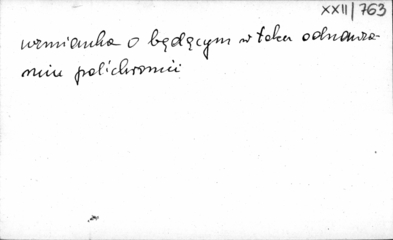 XXII/763
wzmianka o będącym w toku odnawia-
niu polichromii